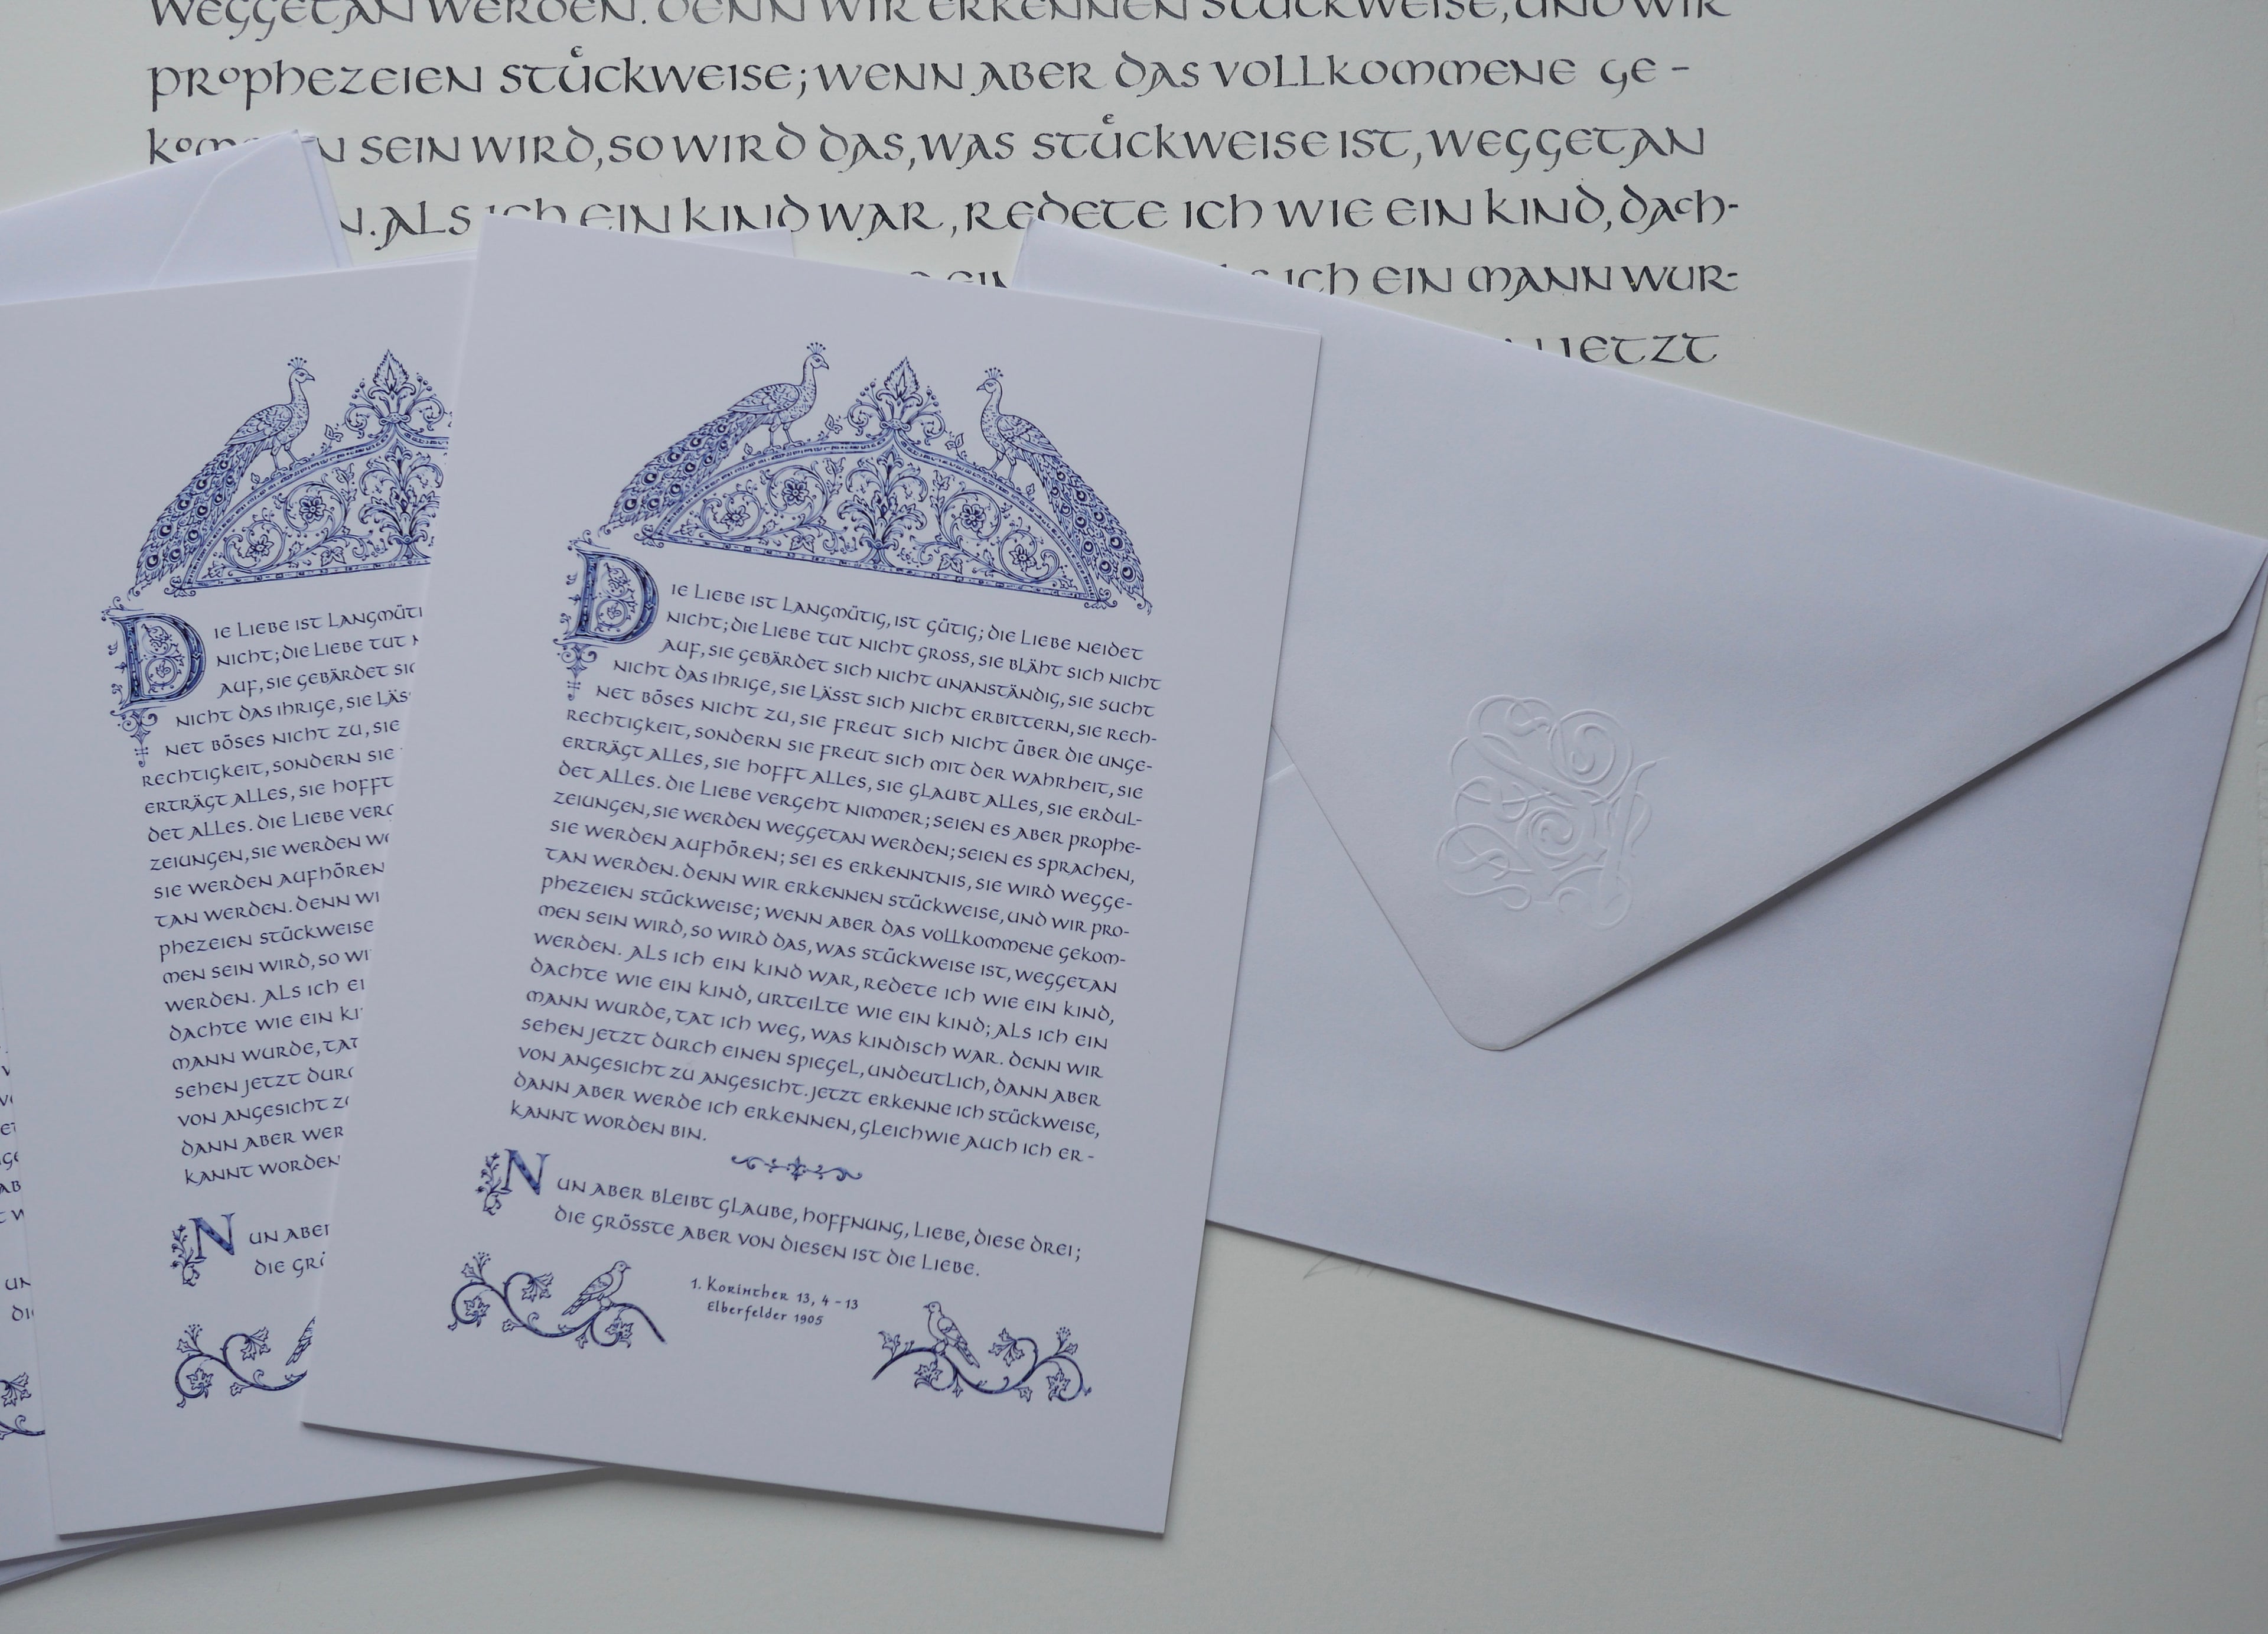 WEGGETAN WERDEN. DENN WIR ERKENNEN STÜCKWEISE, UND WIR
PROPHEZEIEN STÜCKWEISE; WENN ABER DAS VOLLKOMMENE GE-
SEIN WIRD, SO WIRD DAS, WAS STÜCKWEISE IST, WEGGETAN
N. ALS ICH EIN KIND WAR, REDETE ICH WIE EIN KIND, DACH-
ICH EIN MANN WUR-
JETZT
DIE LIEBE IST LANGMÜTI
NICHT; DIE LIEBE TUT N
AUF, SIE GEBÄRDET SIC
NICHT DAS IHRIGE, SIE LÄS
NET BÖSES NICHT ZU, SIE
RECHTIGKEIT, SONDERN SIE
ERTRÄGT ALLES, SIE HOFFT
DET ALLES. DIE LIEBE VERG
ZEIUNGEN, SIE WERDEN WE
SIE WERDEN AUFHÖREN
TAN WERDEN. DENN WI
PHEZEIEN STÜCKWEISE
MEN SEIN WIRD, SO WI
WERDEN. ALS ICH EI
DACHTE WIE EIN KI
MANN WURDE, TAT
SEHEN JETZT DURC
VON ANGESICHT ZU
DANN ABER WER
KANNT WORDEN
NUN ABER
DIE GRÖ
DIE LIEBE IST LANGMÜTIG, IST GÜTIG; DIE LIEBE NEIDET
NICHT; DIE LIEBE TUT NICHT GROSS, SIE BLÄHT SICH NICHT
AUF, SIE GEBÄRDET SICH NICHT UNANSTÄNDIG, SIE SUCHT
NICHT DAS IHRIGE, SIE LÄSST SICH NICHT ERBITTERN, SIE RECH-
NET BÖSES NICHT ZU, SIE FREUT SICH NICHT ÜBER DIE UNGE-
RECHTIGKEIT, SONDERN SIE FREUT SICH MIT DER WAHRHEIT, SIE
ERTRÄGT ALLES, SIE HOFFT ALLES, SIE GLAUBT ALLES, SIE ERDUL-
DET ALLES. DIE LIEBE VERGEHT NIMMER; SEIEN ES ABER PROPHE-
ZEIUNGEN, SIE WERDEN WEGGETAN WERDEN; SEIEN ES SPRACHEN,
SIE WERDEN AUFHÖREN; SEI ES ERKENNTNIS, SIE WIRD WEGGE-
TAN WERDEN. DENN WIR ERKENNEN STÜCKWEISE, UND WIR PRO-
PHEZEIEN STÜCKWEISE; WENN ABER DAS VOLLKOMMENE GEKOM-
MEN SEIN WIRD, SO WIRD DAS, WAS STÜCKWEISE IST, WEGGETAN
WERDEN. ALS ICH EIN KIND WAR, REDETE ICH WIE EIN KIND,
DACHTE WIE EIN KIND, URTEILTE WIE EIN KIND; ALS ICH EIN
MANN WURDE, TAT ICH WEG, WAS KINDISCH WAR. DENN WIR
SEHEN JETZT DURCH EINEN SPIEGEL, UNDEUTLICH, DANN ABER
VON ANGESICHT ZU ANGESICHT. JETZT ERKENNE ICH STÜCKWEISE,
DANN ABER WERDE ICH ERKENNEN, GLEICHWIE AUCH ICH ER-
KANNT WORDEN BIN.
NUN ABER BLEIBT GLAUBE, HOFFNUNG, LIEBE, DIESE DREI;
DIE GRÖSSTE ABER VON DIESEN IST DIE LIEBE.
1. Korinther 13, 4-13
Elberfelder 1905